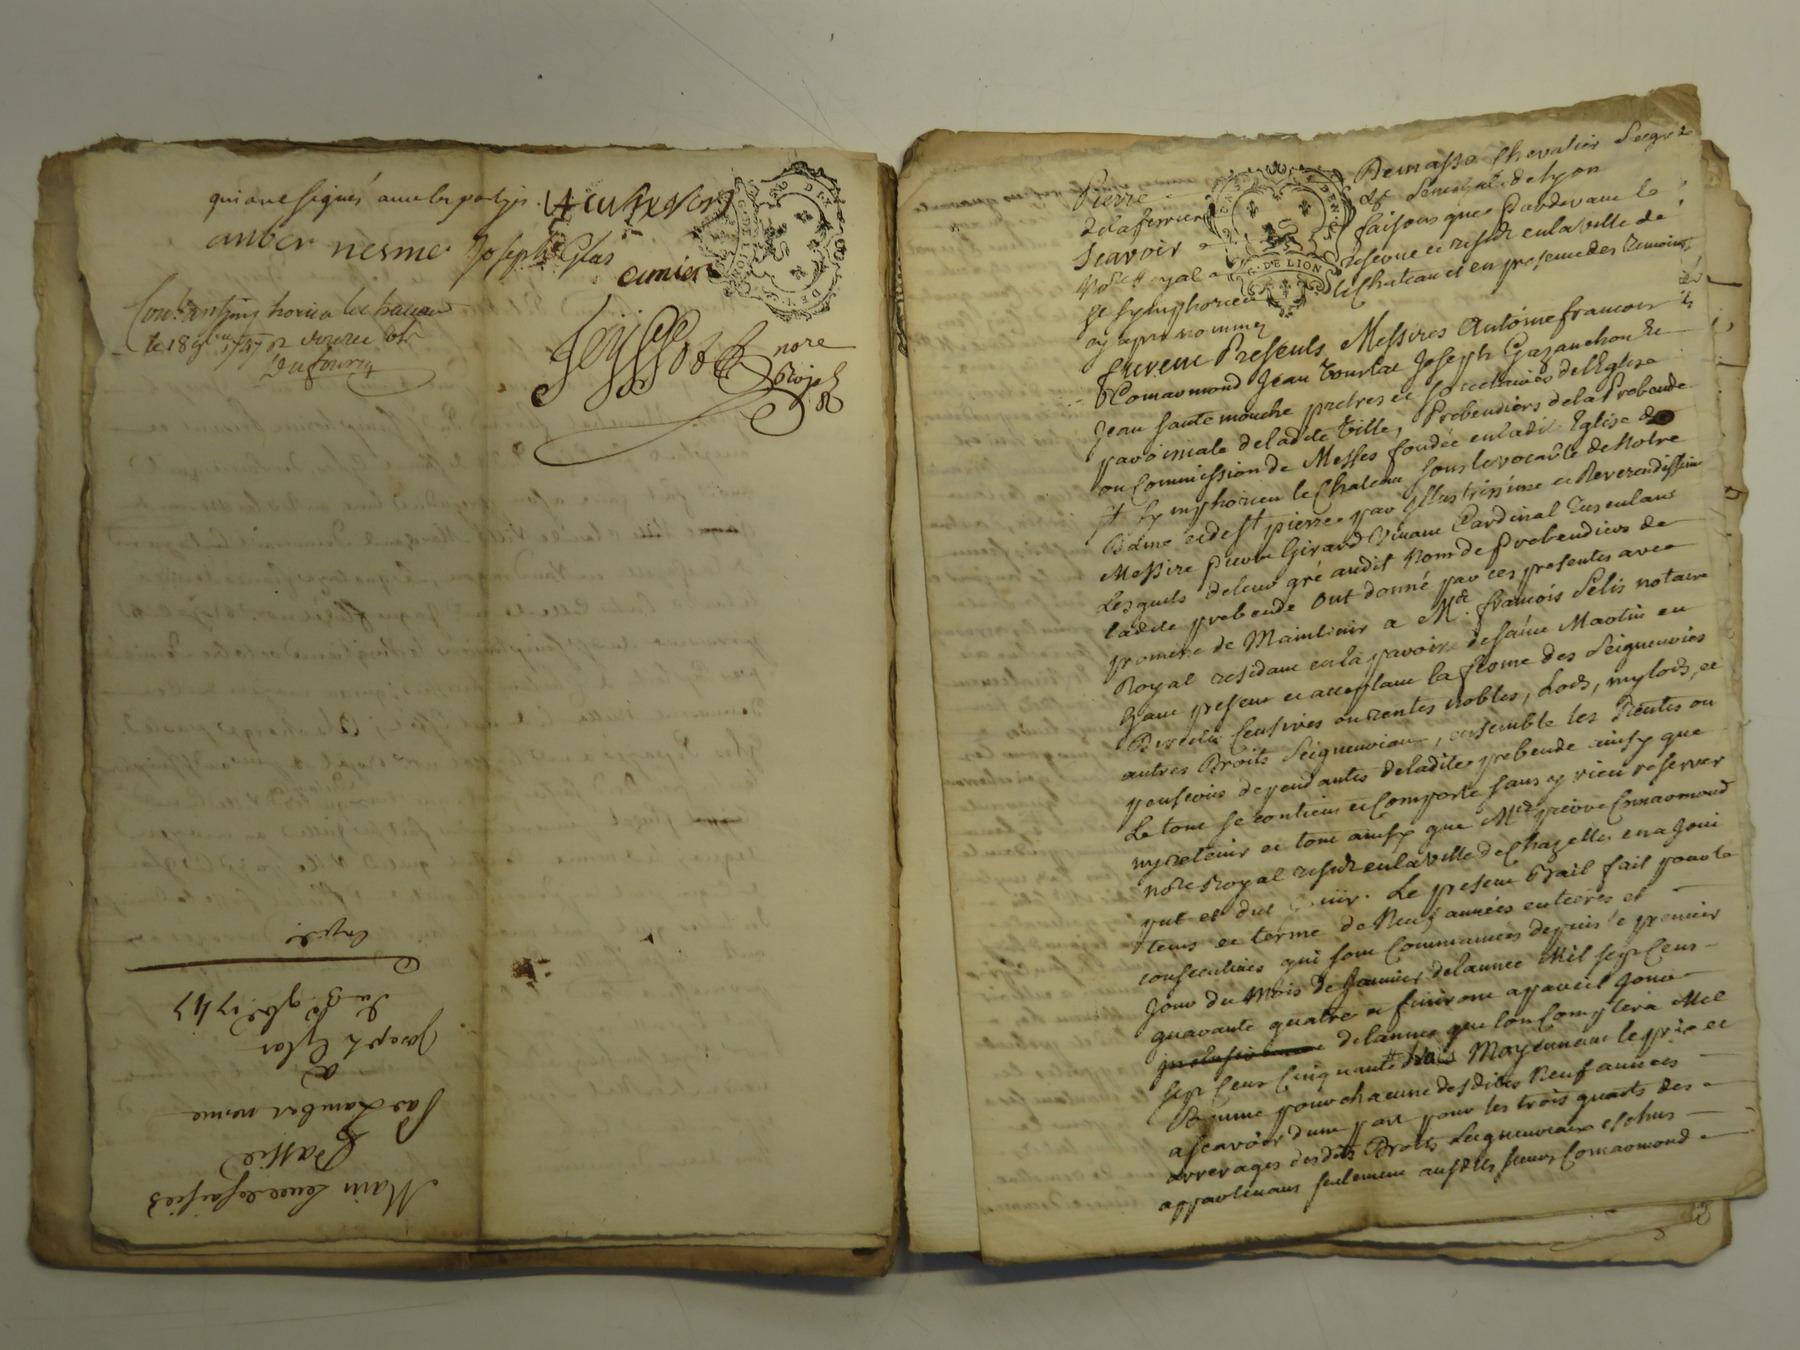 qui ont signé avec les partyes
anber nesme Joseph Glas
cimier
Con.lé a st simphorien le chateau
le 18 9bre 1747 R douze sols
Dufour
Peysson nore
Royal
G. DE LION
Main levée de saisies
Passée
Par Lamber nesme
a
Joseph Glas
Du 8e 9bre 1747
Pierre Demasso Chevalier Seigr
de la ferriere & Senechal de Lyon
Scavoir faisons que Pardevant le
Nore Royal reservé et residt en la ville de
St Symphorien le Chateau et en presence des temoins
cy apres nommez
furent Presents Messires Antoine francois
Comarmond Jean Joseph Gazanchon et
Jean santemouche pretres et societaires de l'Eglise
paroissiale de ladte Ville, Prebendiers de la Prebende
ou Commission de Messes fondée en ladte Eglise de
St Symphorien le Chateau sous le vocable de Notre
Dame et de St pierre par Illustrissime et Reverendissime
Messire Pierre Girard Vivant Cardinal Tusculans
Lesquels de leur gré audit Nom de prebendiers de
ladte prebende ont donné par ces presentes avec
promesse de Maintenir a Me francois Pelis notaire
Royal residant en la paroisse de saint Martin en
haut present et acceptant la ferme des Seigneuries
Directes Censives ou rentes Nobles, Lods, mylods, et
autres Droits Seigneuriaux, ensemble les Rentes ou
pensions dependantes de ladite prebende ainsy que
Le tout se contient et Comporte sans y rien reserver
ny retenir et tout ainsy que Me pierre Comarmond
nore Royal residt en la ville de Chazelles en a Joui
put et dut Jouir. Le present Bail fait pour le
tems et terme de Neuf années entieres et
consecutives qui sont Commencées depuis le premier
Jour du Mois de Janvier de l'année Mil sept Cens
quarante quatre et finiront a pareil Jour
de l'année que l'on Comptera Mil
sept Cens Cinquante trois Moyennant le prix et
somme pour chacune desdites Neuf années
a scavoir d'une part pour les trois quarts des
arrerages desdits Droits Seigneuriaux eschus
appartenans seulement auxdts sieurs Comarmond